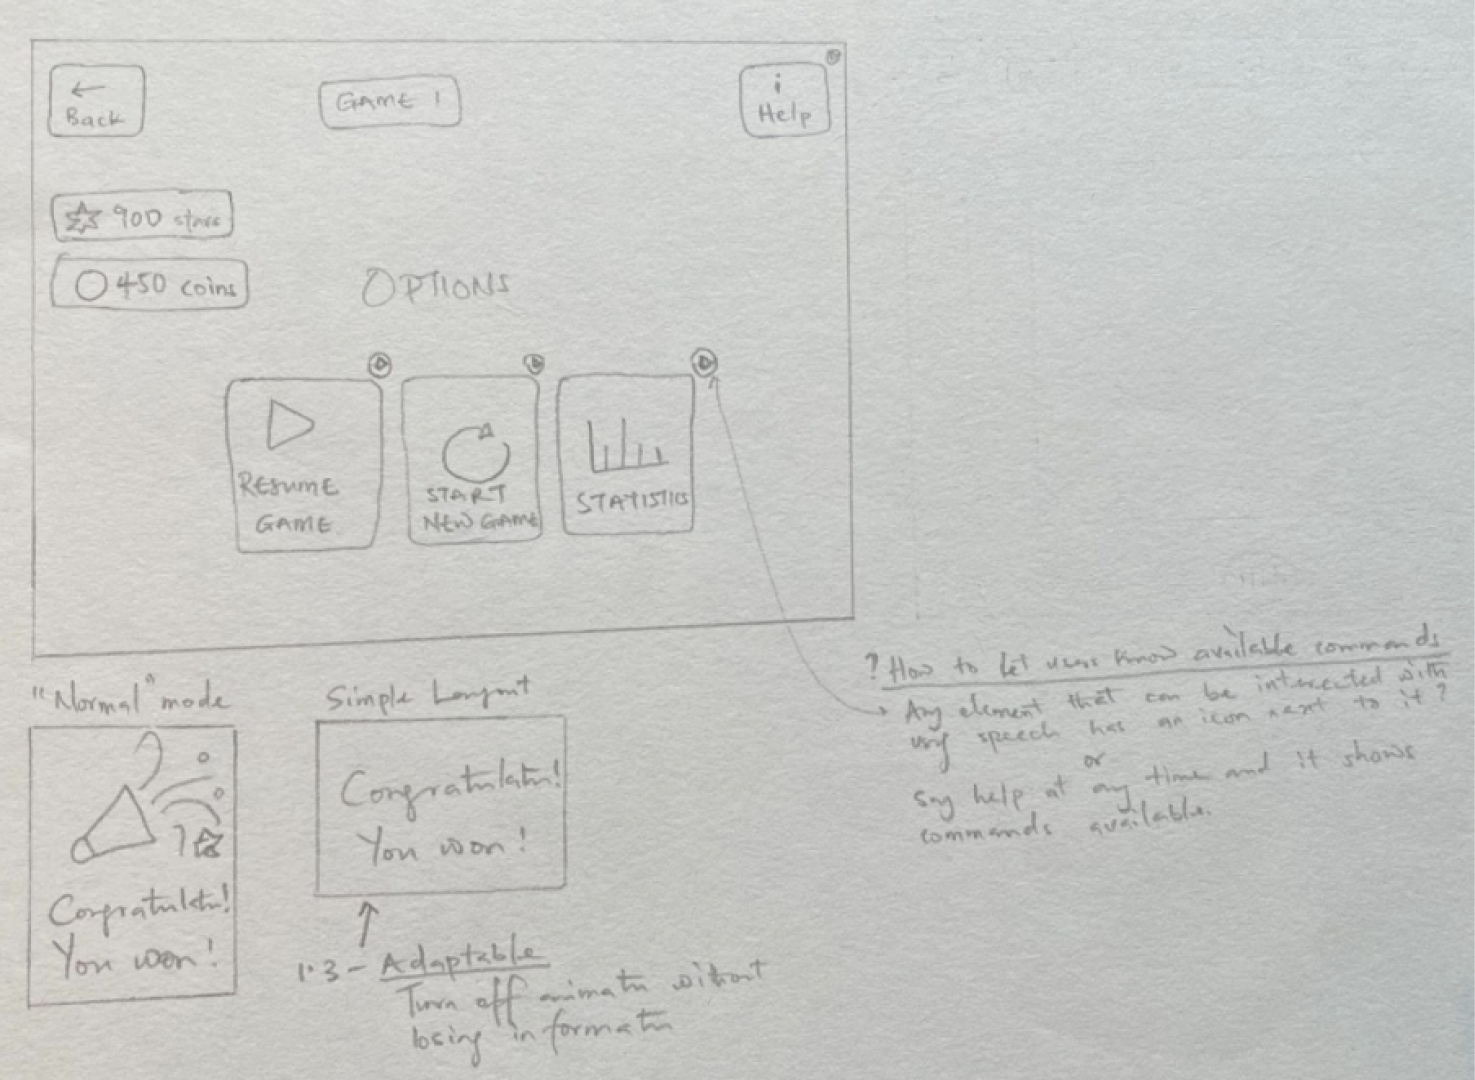 ←
Back
GAME 1
i
Help
900 stars
450 coins
OPTIONS
RESUME
GAME
START
NEW GAME
STATISTICS
? How to let users know available commands
Any element that can be interacted with
using speech has an icon next to it?
or
Say help at any time and it shows
commands available.
"Normal" mode
Congratulatn!
You won!
Simple Layout
Congratulatn!
You won!
1.3 - Adaptable
Turn off animatn without
losing informatn